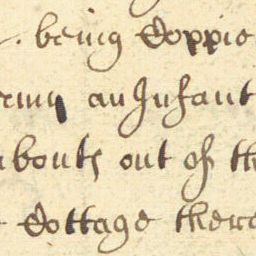 being Coppie
an Infant
abouts out of th
Cottage there